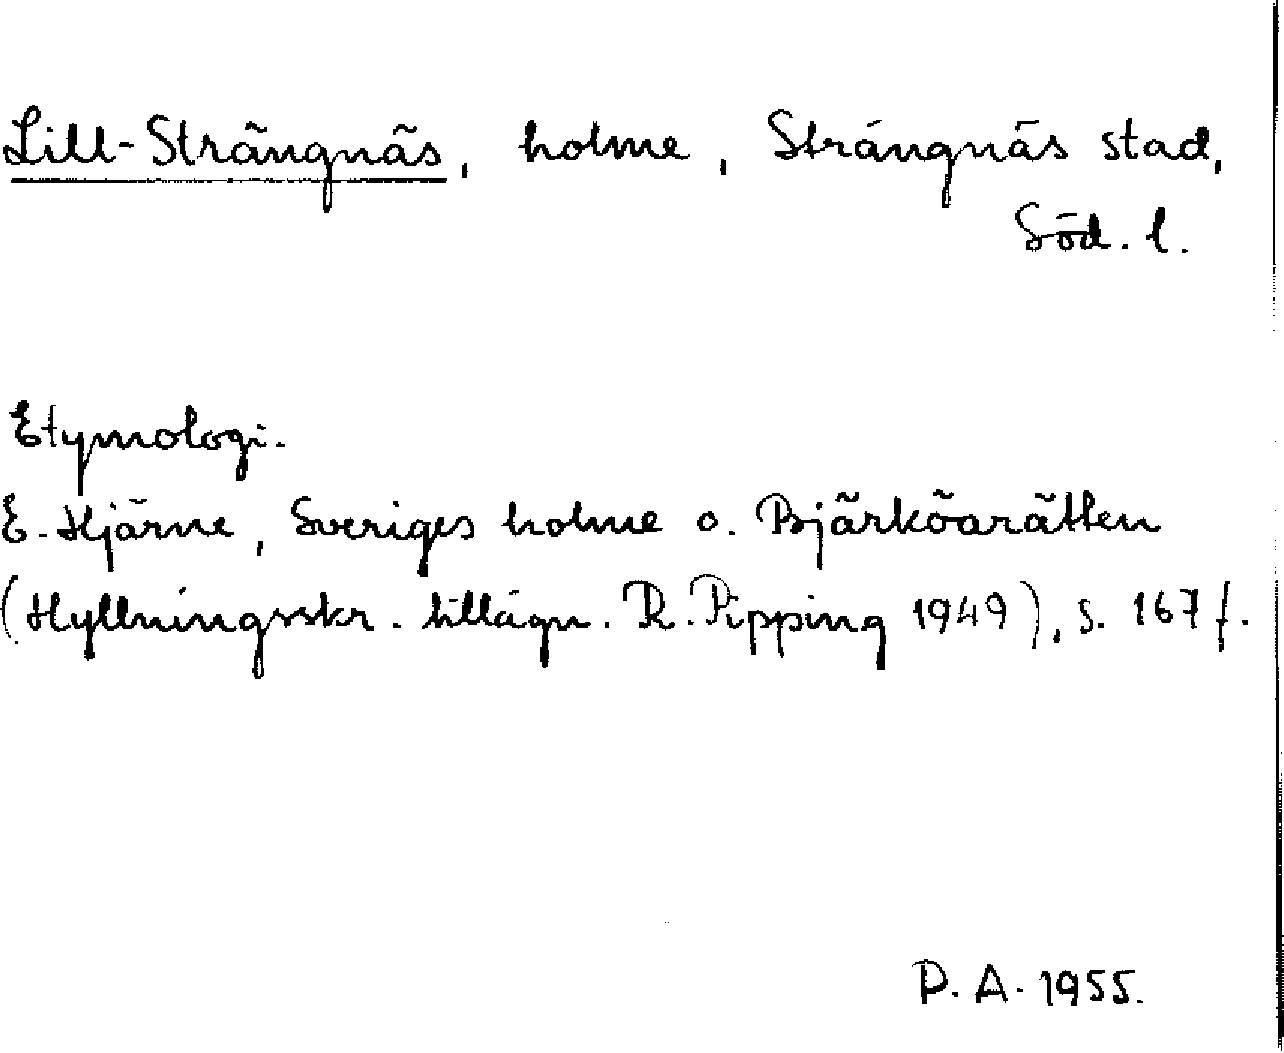 Lill-Strängnäs, holme, Strängnäs stad,
Söd. l.
Etymologi.
E. Hjärne, Sveriges holme o. Bjärköarätten
(Hyllningsskr. tillägn. R. Pipping 1949), s. 167 f.
P. A. 1955.